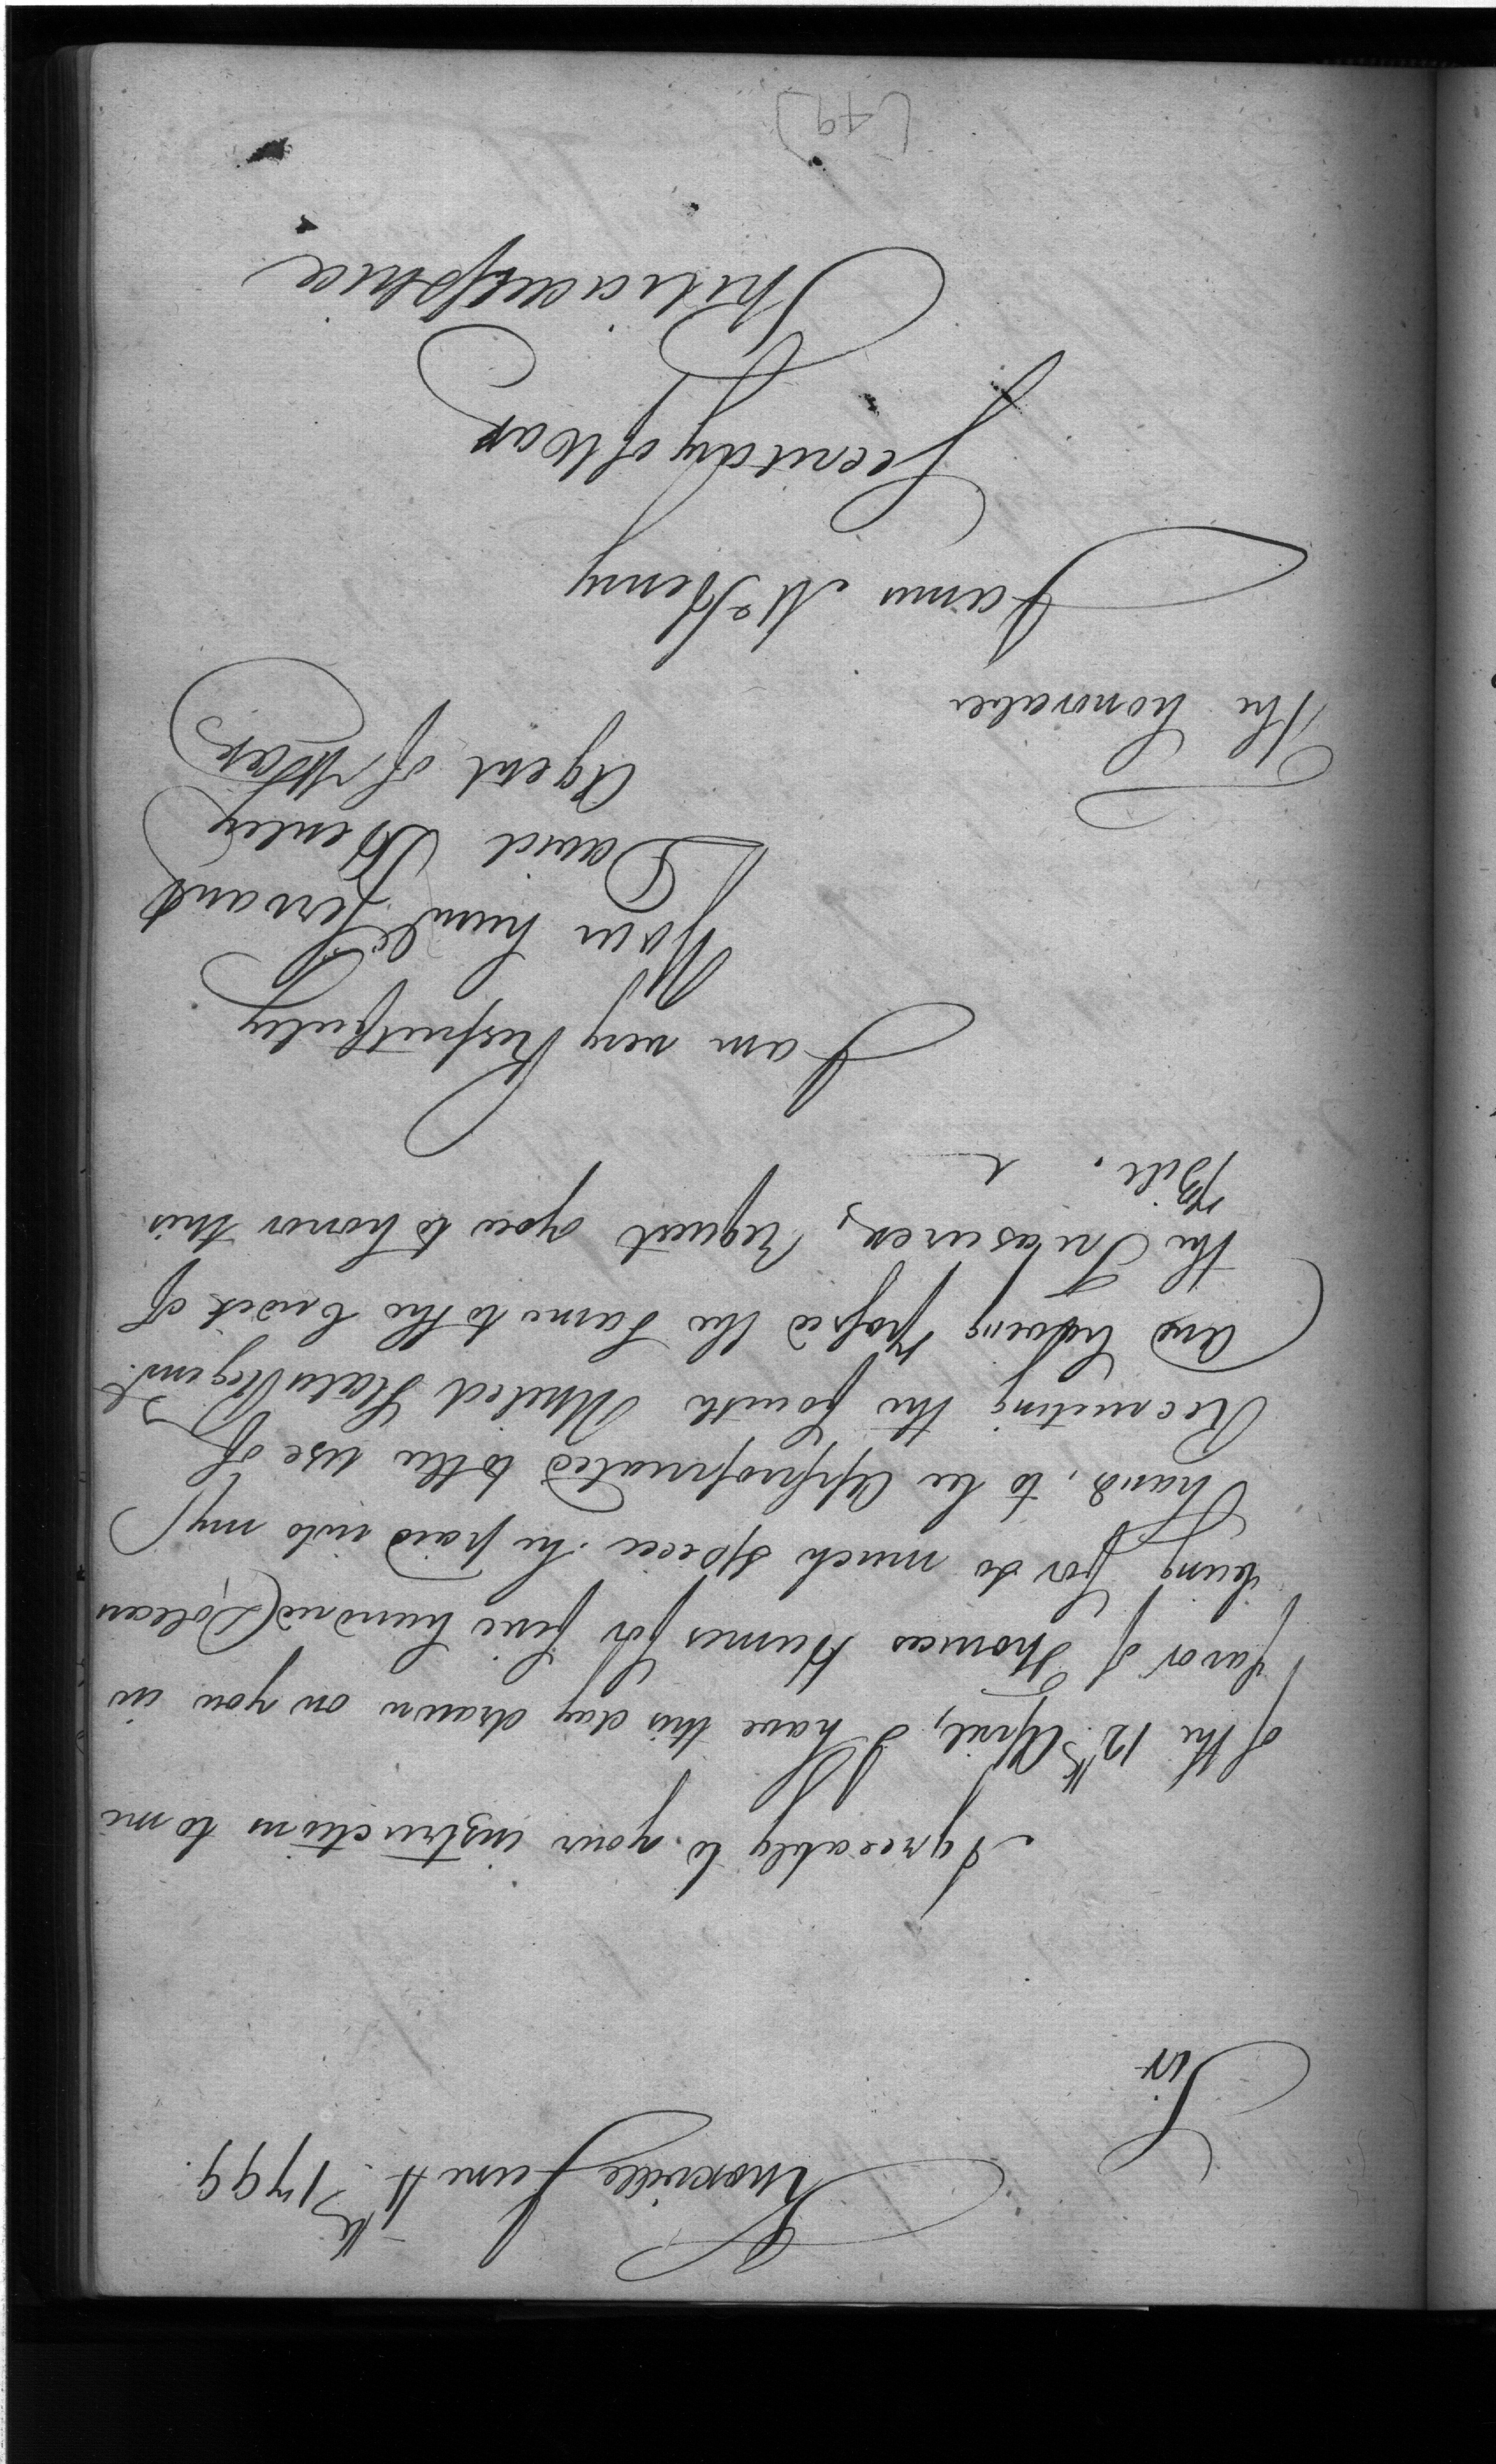 Knoxville June 4th 1799.
Sir
Agreeably to your instructions to me
of the 12th April, I have this day drawn on you in
favor of Thomas Humes for five hundred Dollars
being for so much specie he paid into my
hand, to be appropriated to the use of
Recruiting the fourth United States Regimt.
and having passed the same to the Credit of
the Treasurer, request you to honor this
Bill.
I am very Respectfully
Your humle Servant
David Henley
Agent of War
The honorable
James McHenry
Secretary of War
Philadelphia
(49)